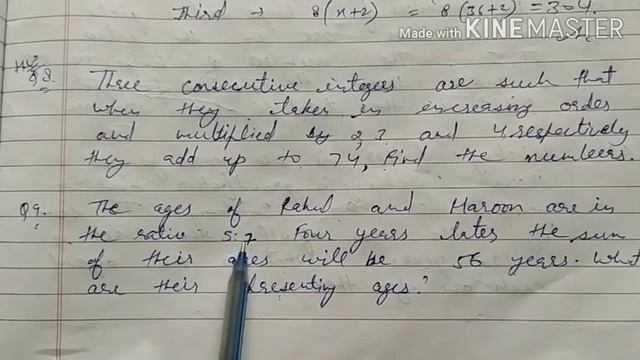 Third → 8(x+2) = 8(36+2) = 304.
Made with KINEMASTER
Q8. Three consecutive integers are such that
when they taken in increasing order
and multiplied by 2 3 and 4 respectively
they add up to 74, Find the numbers.
Q9. The ages of Rahul and Haroon are in
the ratio 5:7 Four years later the sum
of their ages will be 56 years. What
are their presenting ages?